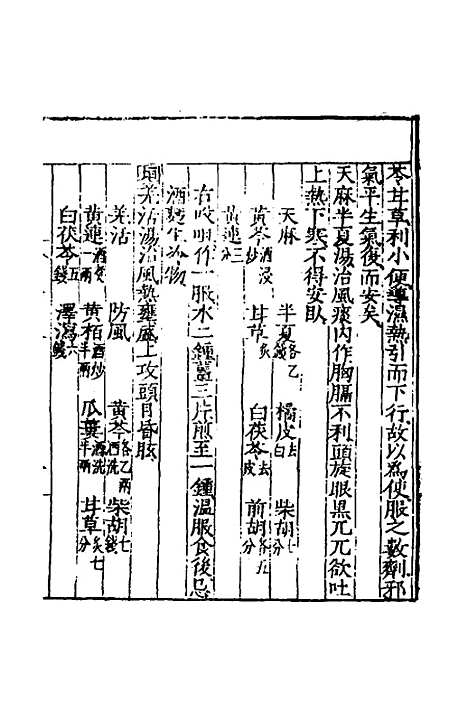 苓甘草利小便導濕熱引而下行故以為使服之數劑邪
氣平生氣後而安矣
天麻半夏湯治風痰內作胸膈不利頭旋眼黒兀兀欲吐
上熱下寒不得安臥
天麻 半夏各乙錢 橘皮去白 柴胡七分
黃芩酒浸炒 甘草炙 白茯苓去皮 前胡各五分
黃連三分
右㕮咀作一服水二鍾薑三片煎至一鍾温服食後忌
酒麪生冷物
羌活湯治風熱壅盛上攻頭目昏眩
羌活 防風 黃芩酒洗各乙兩 柴胡七錢
黃連酒煑一兩 黃栢酒炒半兩 瓜蔞酒洗半兩 甘草炙七分
白茯苓五錢 澤瀉六錢